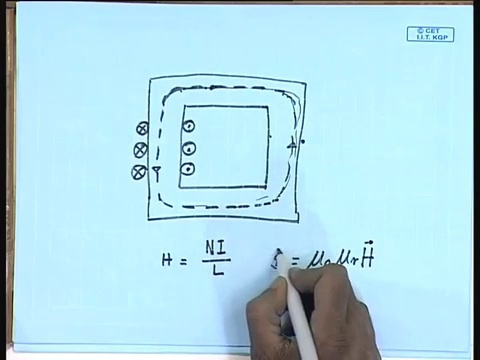 © CET
I.I.T. KGP
H = NI / L
B = μ₀ μᵣ H⃗